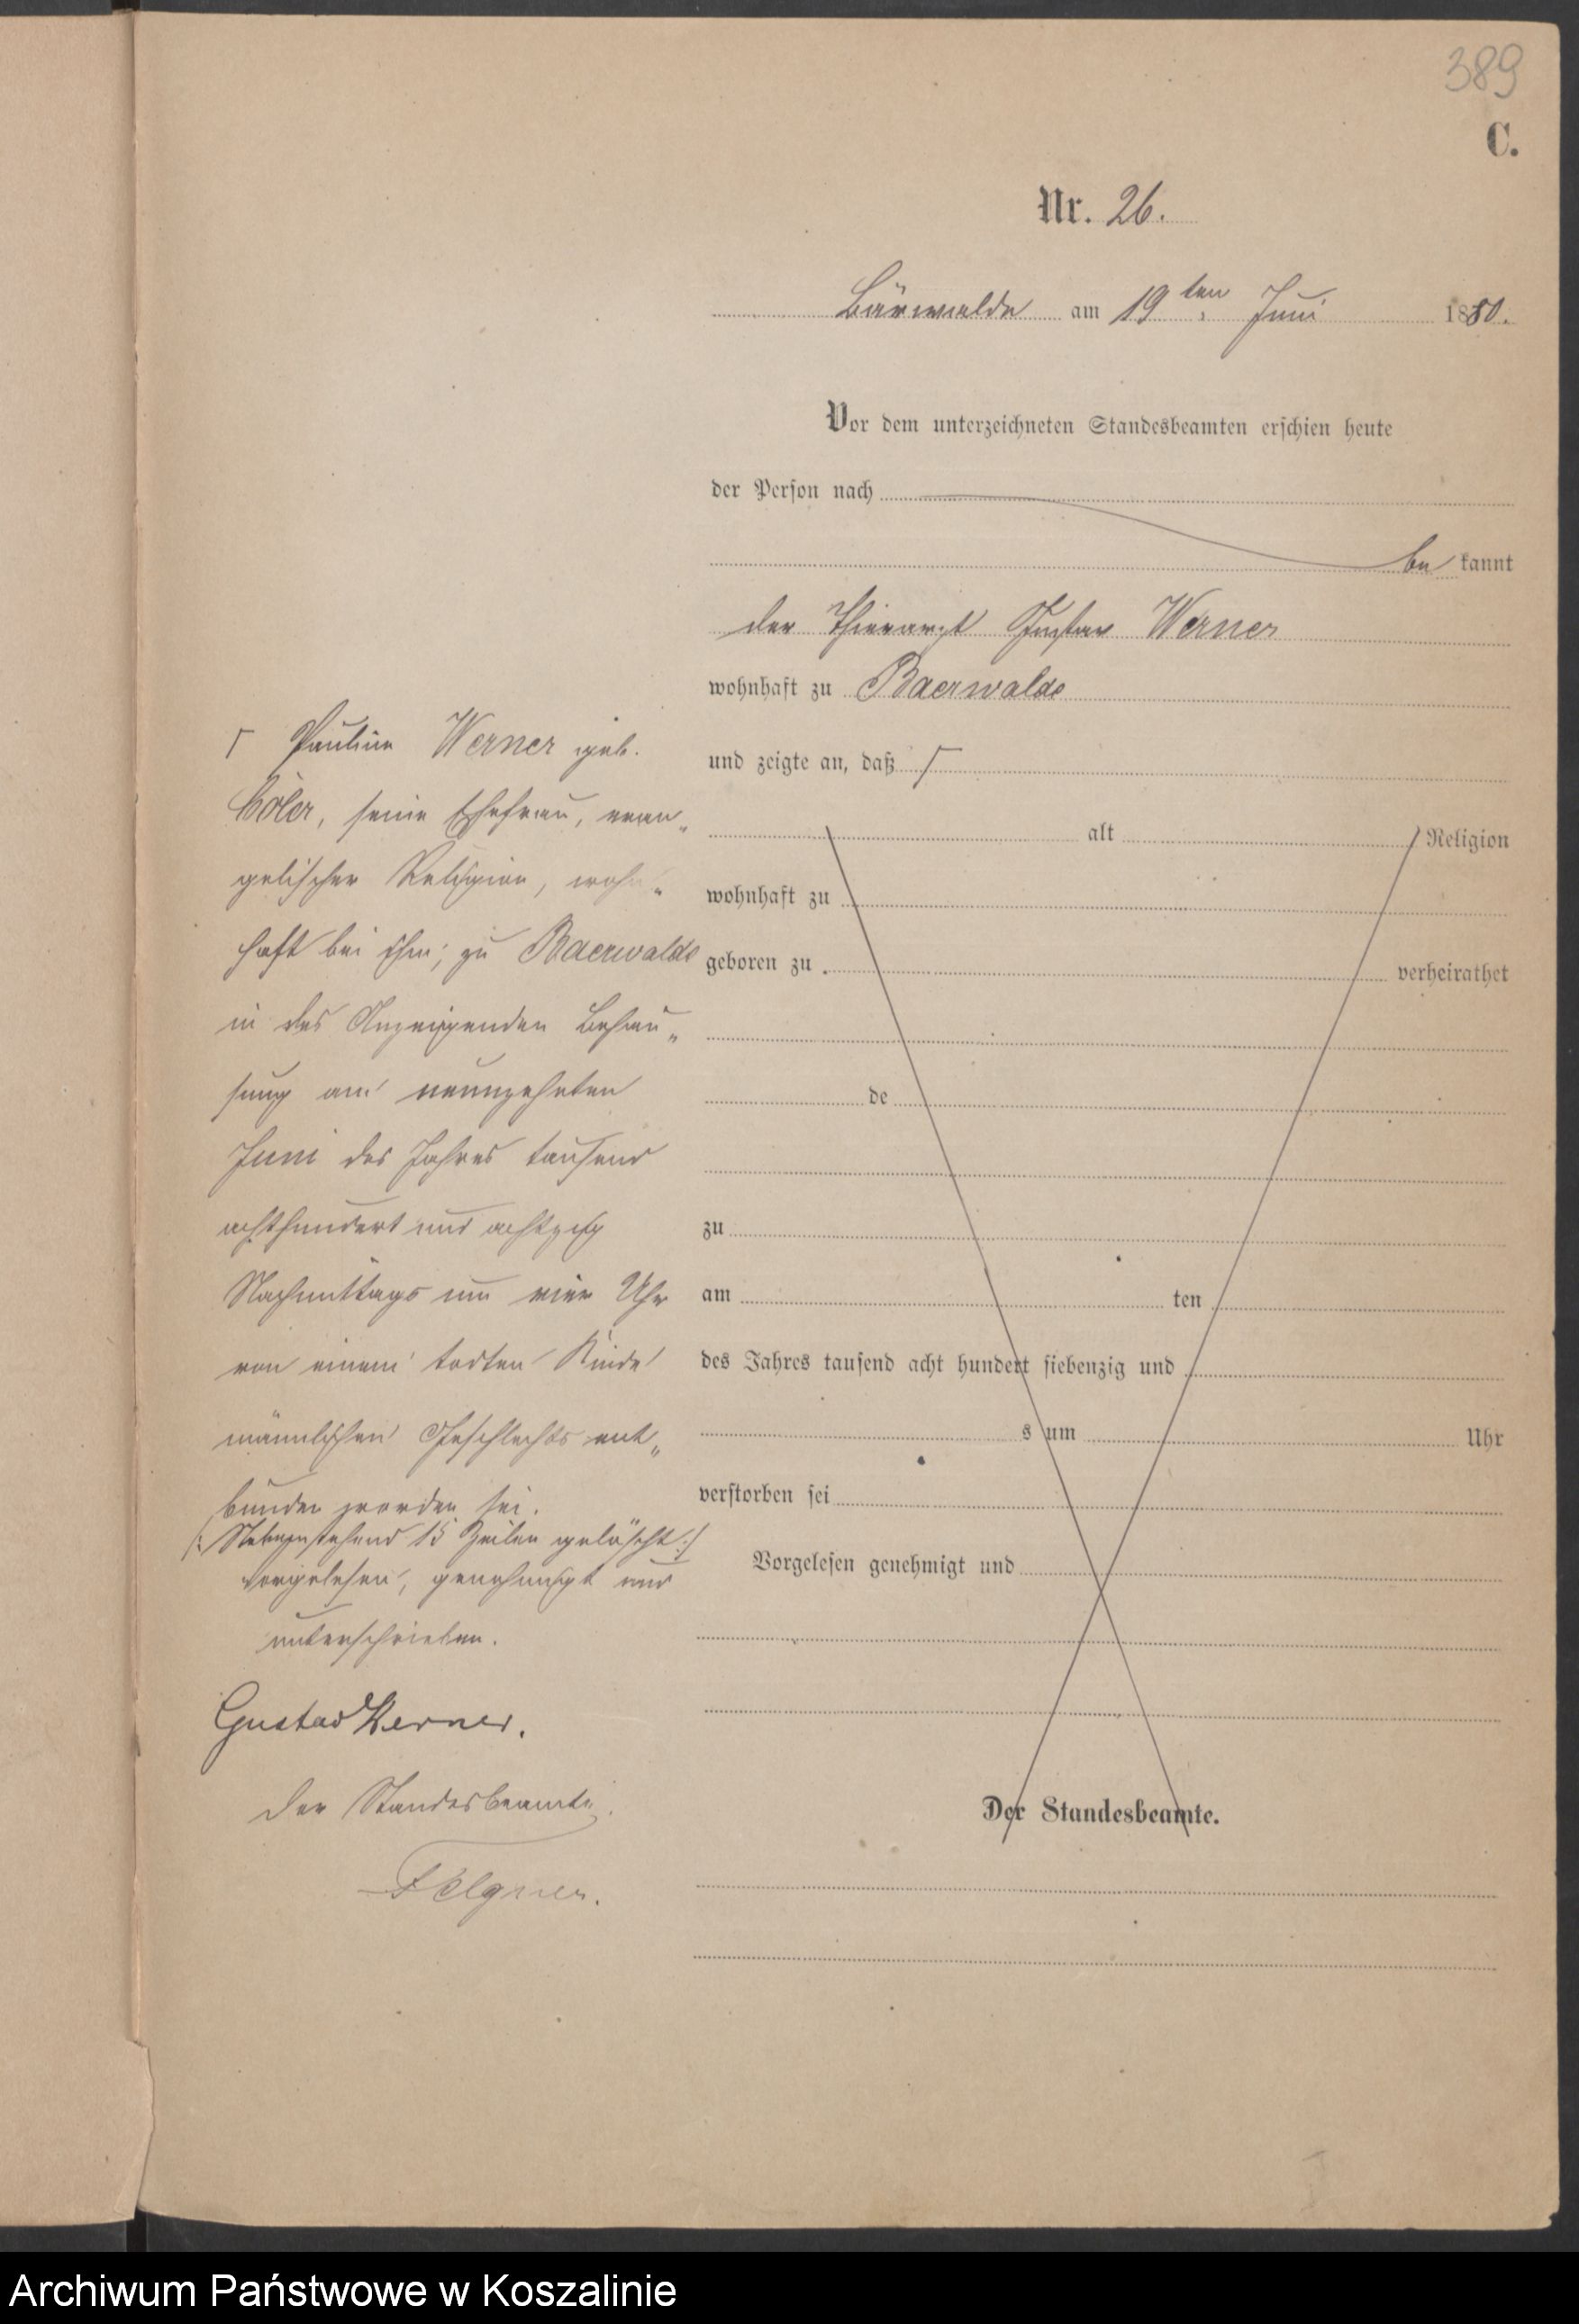 389
C.
Nr. 26.
Bärwalde am 19ten Juni 1880.
Vor dem unterzeichneten Standesbeamten erschien heute
der Person nach
be kannt
der Thierarzt Gustav Werner
wohnhaft zu Baerwalde
und zeigte an, daß Γ
alt Religion
wohnhaft zu
geboren zu verheirathet
de
zu
am ten
des Jahres tausend acht hundert siebenzig und
s um Uhr
verstorben sei
Vorgelesen genehmigt und
Der Standesbeamte.
Γ Pauline Werner geb.
seine Ehefrau, evan„
gelischer Religion, wohn„
haft bei ihm, zu Baerwalde
in des Anzeigenden Behau„
sung am neunzehnten
Juni des Jahres tausend
achthundert und achtzig
Nachmittags um vier Uhr
von einem todten Kinde
männlichen Geschlechts ent„
bunden worden sei.
/: Nebenstehend 15 Zeilen gelöscht :/
vorgelesen, genehmigt und
unterschrieben.
Gustav Werner.
Der Standesbeamte.
Felgner.
Archiwum Państwowe w Koszalinie